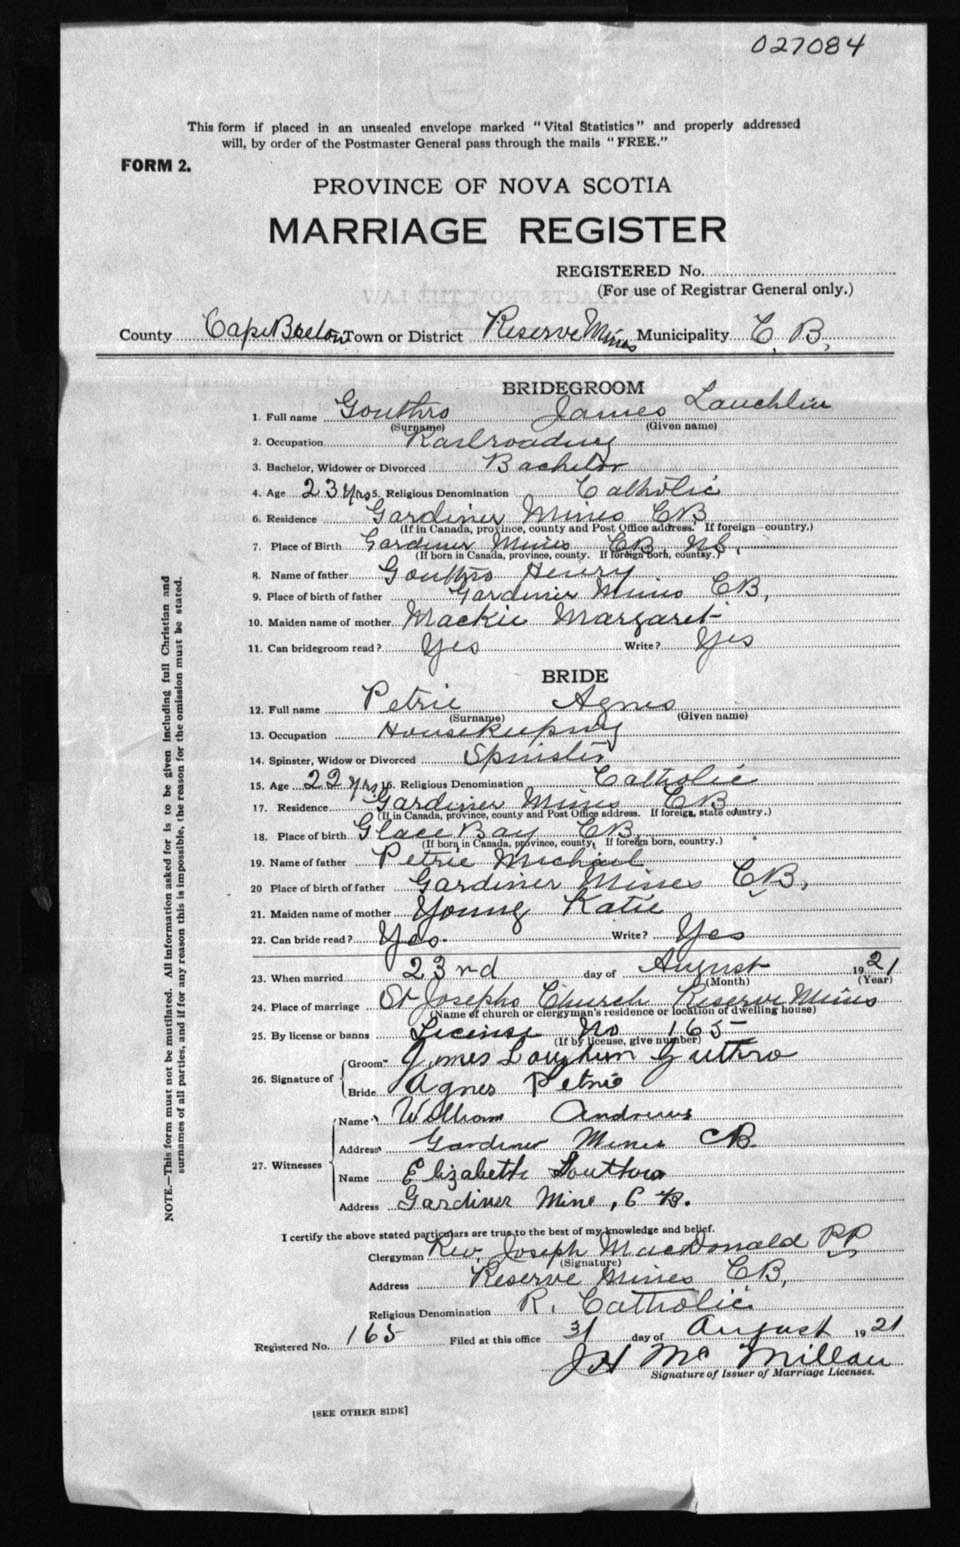 027084
This form if placed in an unsealed envelope marked "Vital Statistics" and properly addressed
will, by order of the Postmaster General pass through the mails "FREE."
FORM 2.
PROVINCE OF NOVA SCOTIA
MARRIAGE REGISTER
REGISTERED No.
(For use of Registrar General only.)
County Cape Breton Town or District Reserve Mines Municipality C. B.
BRIDEGROOM
1. Full name Gouthro James Lauchlin
(Surname) (Given name)
2. Occupation Railroading
3. Bachelor, Widower or Divorced Bachelor
4. Age 23 yrs 5. Religious Denomination Catholic
6. Residence Gardiner Mines CB
(If in Canada, province, county and Post Office address. If foreign country.)
7. Place of Birth Gardiner Mines CB, NS.
(If born in Canada, province, county. If foreign born, country.)
8. Name of father Gouthro Henry
9. Place of birth of father Gardiner Mines CB,
10. Maiden name of mother Mackie Margaret
11. Can bridegroom read? Yes Write? Yes
BRIDE
12. Full name Petrie Agnes
(Surname) (Given name)
13. Occupation Housekeeping
14. Spinster, Widow or Divorced Spinster
15. Age 22 yrs 16. Religious Denomination Catholic
17. Residence Gardiner Mines CB
(If in Canada, province, county and Post Office address. If foreign, state country.)
18. Place of birth Glace Bay CB,
(If born in Canada, province, county, If foreign born, country.)
19. Name of father Petrie Michael
20 Place of birth of father Gardiner Mines CB,
21. Maiden name of mother Young Katie
22. Can bride read? Yes. Write? Yes
23. When married 23rd day of August 1921
(Month) (Year)
24. Place of marriage St Josephs Church Reserve Mines
(Name of church or clergyman's residence or location of dwelling house)
25. By license or banns License No 165
(If by license, give number)
26. Signature of Groom James Laughlin Guthro
Bride Agnes Petrie
27. Witnesses Name William Andrews
Address Gardiner Mines CB.
Name Elizabeth Gouthro
Address Gardiner Mine, C B.
I certify the above stated particulars are true to the best of my knowledge and belief.
Clergyman Rev. Joseph MacDonald PP
(Signature)
Address Reserve Mines CB,
Religious Denomination R. Catholic
Registered No. 165 Filed at this office 31 day of August 1921
J H McMillan
Signature of Issuer of Marriage Licenses.
[SEE OTHER SIDE]
NOTE.—This form must not be mutilated. All information asked for is to be given including full Christian and
surnames of all parties, and if for any reason this is impossible, the reason for the omission must be stated.